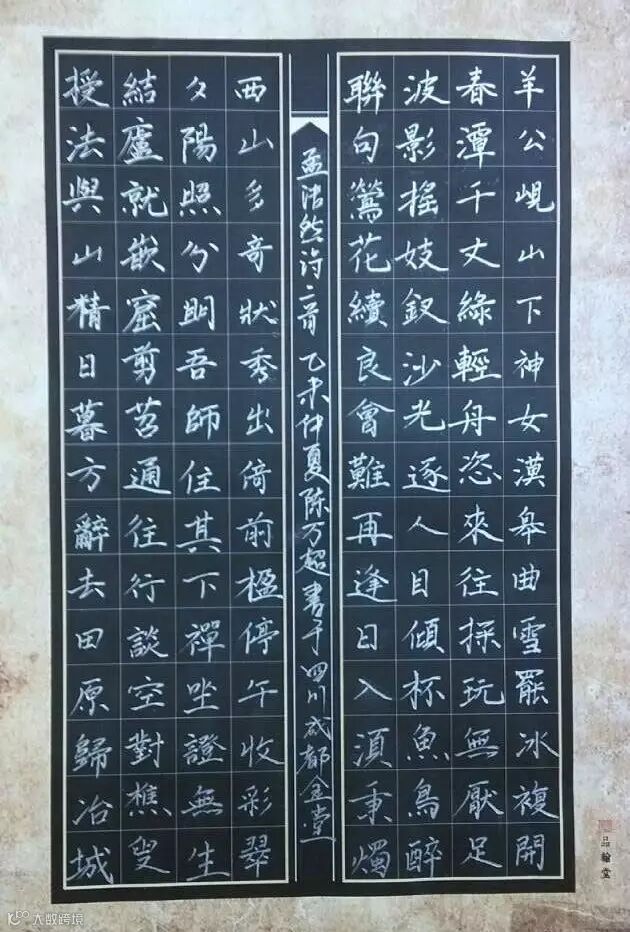 羊公峴山下神女漢皋曲雪罷冰複開
春潭千丈綠輕舟恣來往探玩無厭足
波影搖妓釵沙光逐人目傾杯魚鳥醉
聯句鶯花續良會難再逢日入須秉燭
孟浩然诗二首 乙未仲夏陈万超書于四川成都金堂
西山多奇狀秀出倚前楹停午收彩翠
夕陽照分眀吾師住其下禪坐證無生
結廬就嵌窟剪苕通往行談空對樵叟
授法與山精日暮方辭去田原歸冶城
品翰堂
大数跨境